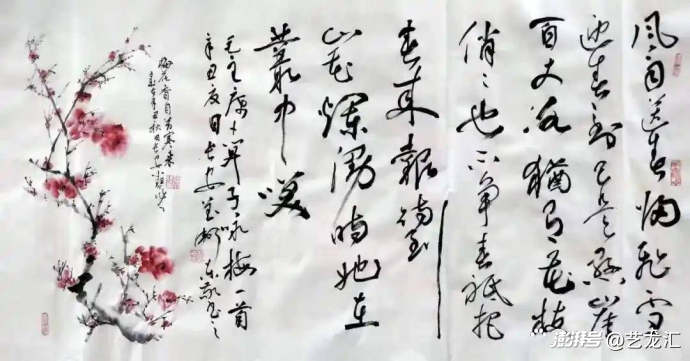 风雨送春归飞雪
迎春到已是悬崖
百丈冰犹有花枝
俏〻也不争春祗把
春来报待到
山花烂漫时她在
叢中咲
毛主席卜算子咏梅一首
辛丑夏月
梅花香自苦寒来
澎湃号@艺龙汇